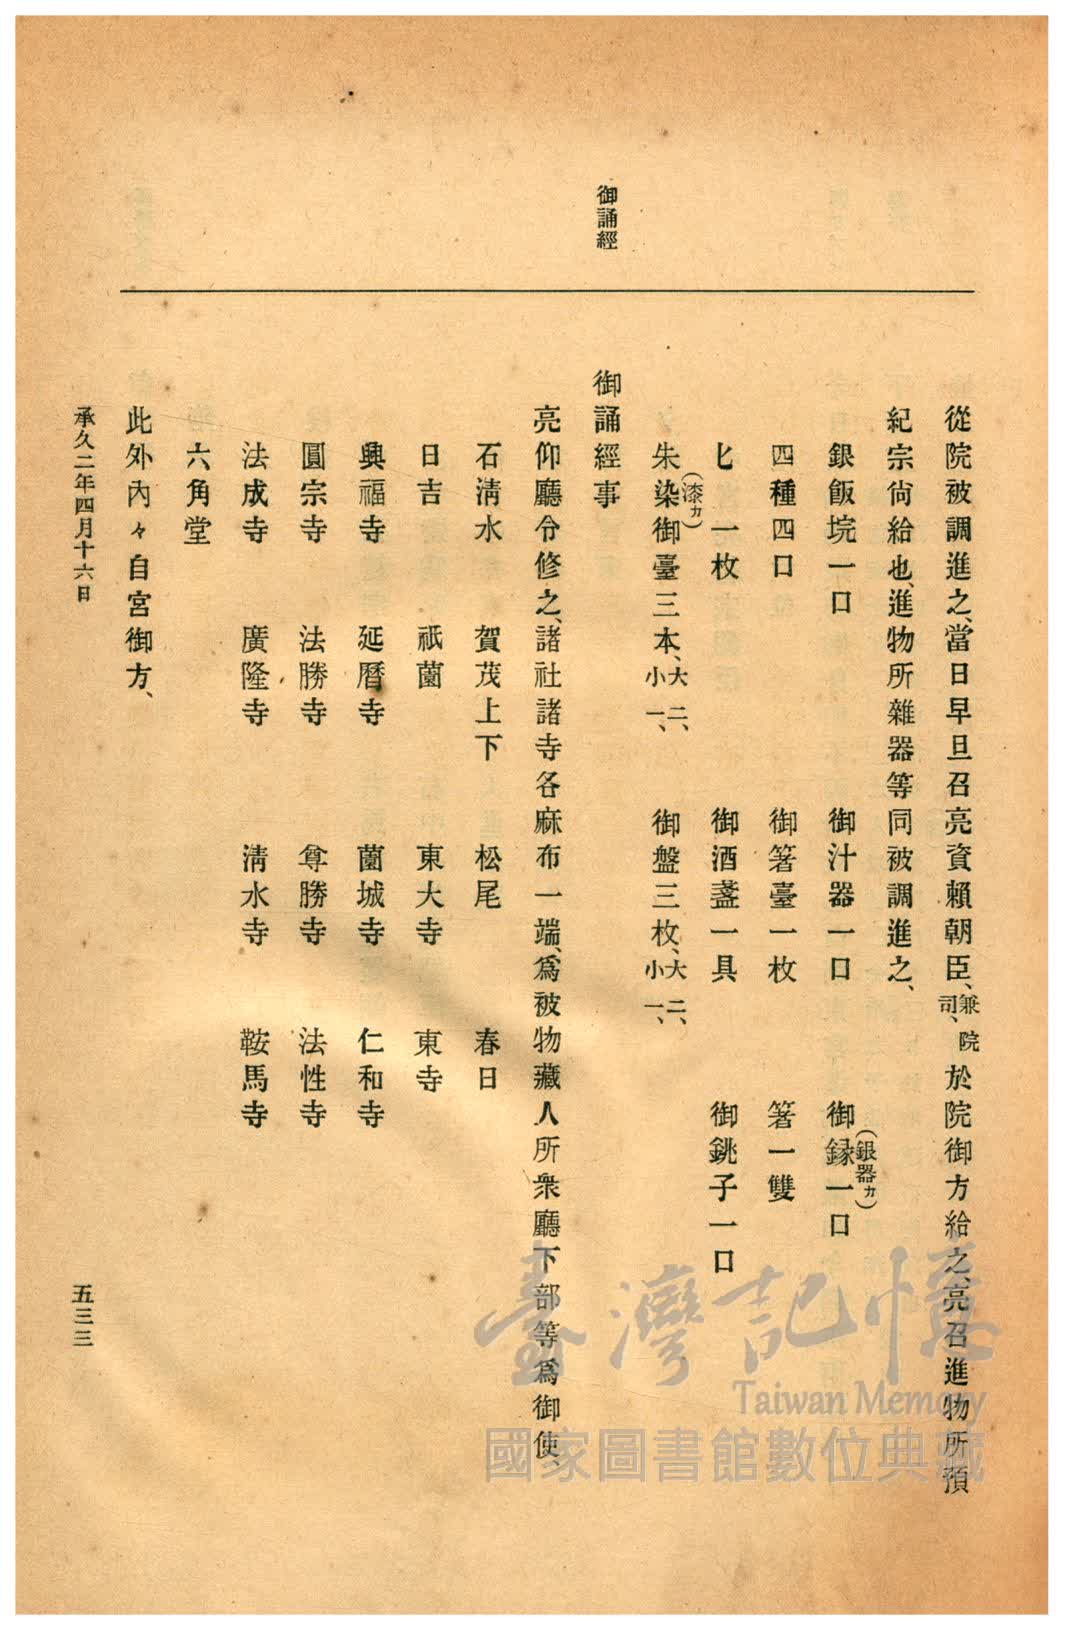 御誦經
從院被調進之、當日早旦召亮資賴朝臣、兼院司、於院御方給之、亮召進物所預
紀宗尙給也、進物所雜器等同被調進之、
銀飯垸一口　御汁器一口　御錄一口(銀器カ)
四種四口　御箸臺一枚　箸一雙
匕一枚　御酒盞一具　御銚子一口
朱染(漆カ)御臺三本、大二、小一、　御盤三枚、大二、小一、
御誦經事
亮仰廳令修之、諸社諸寺各麻布一端、爲被物藏人所衆廳下部等爲御使、
石淸水　賀茂上下　松尾　春日
日吉　祇薗　東大寺　東寺
興福寺　延曆寺　薗城寺　仁和寺
圓宗寺　法勝寺　尊勝寺　法性寺
法成寺　廣隆寺　淸水寺　鞍馬寺
六角堂
此外內々自宮御方、
承久二年四月十六日
五三三
臺灣記憶
Taiwan Memory
國家圖書館數位典藏